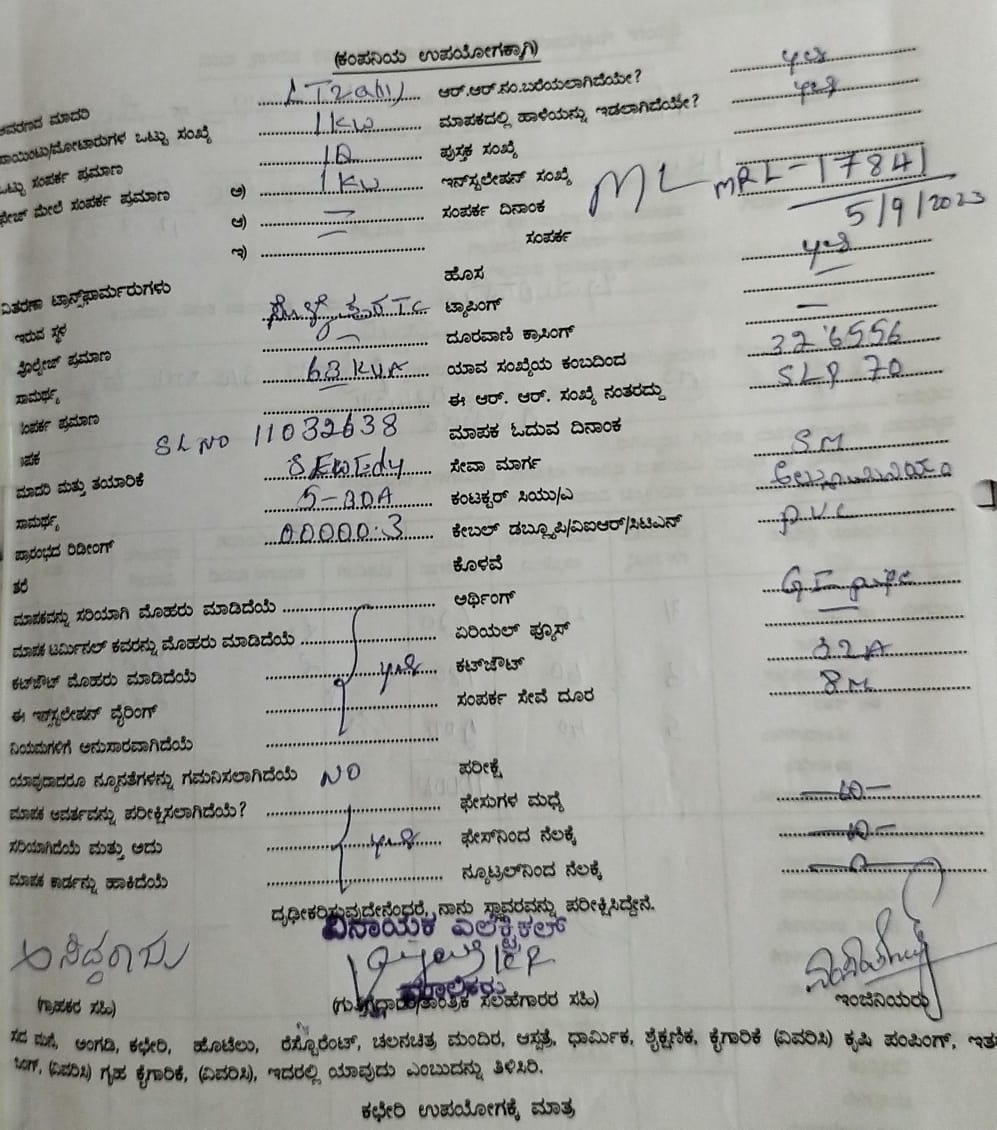 (ಕಂಪನಿಯ ಉಪಯೋಗಕ್ಕಾಗಿ)
ಆವರಣದ ಮಾದರಿ ಆರ್.ಆರ್.ನಂ.ಬರೆಯಲಾಗಿದೆಯೇ? yes
ಪಾಯಿಂಟು/ಮೋಟಾರುಗಳ ಒಟ್ಟು ಸಂಖ್ಯೆ 1KW ಮಾಪಕದಲ್ಲಿ ಹಾಳೆಯನ್ನು ಇಡಲಾಗಿದೆಯೇ? yes
ಒಟ್ಟು ಸಂಪರ್ಕ ಪ್ರಮಾಣ ಪುಸ್ತಕ ಸಂಖ್ಯೆ
ಫೇಜ್ ಮೇಲೆ ಸಂಪರ್ಕ ಪ್ರಮಾಣ ಅ) 1KW ಇನ್‌ಸ್ಟಲೇಷನ್ ಸಂಖ್ಯೆ ML MRL-17841
ಆ) ಸಂಪರ್ಕ ದಿನಾಂಕ 5/9/2023
ಇ) ಸಂಪರ್ಕ
ವಿತರಣಾ ಟ್ರಾನ್ಸ್‌ಫಾರ್ಮರುಗಳು ಹೊಸ yes
ಇರುವ ಸ್ಥಳ TC ಟ್ಯಾಪಿಂಗ್
ವೋಲ್ಟೇಜ್ ಪ್ರಮಾಣ ದೂರವಾಣಿ ಕ್ರಾಸಿಂಗ್ —
ಸಾಮರ್ಥ್ಯ 63 KVA ಯಾವ ಸಂಖ್ಯೆಯ ಕಂಬದಿಂದ 326556
ಸಂಪರ್ಕ ಪ್ರಮಾಣ ಈ ಆರ್. ಆರ್. ಸಂಖ್ಯೆ ನಂತರದ್ದು SLP 70
ಮಾಪಕ SL NO 11032638 ಮಾಪಕ ಓದುವ ದಿನಾಂಕ
ಮಾದರಿ ಮತ್ತು ತಯಾರಿಕೆ ಸೇವಾ ಮಾರ್ಗ 8M
ಸಾಮರ್ಥ್ಯ 5-30A ಕಂಟಕ್ಟರ್ ಸಿಯು/ಎ
ಪ್ರಾರಂಭದ ರಿಡೀಂಗ್ 00000.3 ಕೇಬಲ್ ಡಬ್ಲ್ಯೂಪಿ/ವಿಐಆರ್/ಸಿಟಿಎಸ್ PVC
ತರೆ ಕೊಳವೆ
ಮಾಪಕವನ್ನು ಸರಿಯಾಗಿ ಮೊಹರು ಮಾಡಿದೆಯೆ ಅರ್ಥಿಂಗ್ GI pipe
ಮಾಪಕ ಟರ್ಮಿನಲ್ ಕವರನ್ನು ಮೊಹರು ಮಾಡಿದೆಯೆ ಏರಿಯಲ್ ಫ್ಯೂಸ್
ಕಟ್‌ಔಟ್ ಮೊಹರು ಮಾಡಿದೆಯೆ yes ಕಟ್‌ಔಟ್ 32A
ಈ ಇನ್ಸ್ಟಲೇಷನ್ ವೈರಿಂಗ್ ಸಂಪರ್ಕ ಸೇವೆ ದೂರ 8M
ನಿಯಮಗಳಿಗೆ ಅನುಸಾರವಾಗಿದೆಯೆ
ಯಾವುದಾದರೂ ನ್ಯೂನತೆಗಳನ್ನು ಗಮನಿಸಲಾಗಿದೆಯೆ NO ಪರೀಕ್ಷೆ
ಮಾಪಕ ಆವರ್ತವನ್ನು ಪರೀಕ್ಷಿಸಲಾಗಿದೆಯೆ? ಫೇಸುಗಳ ಮಧ್ಯೆ
ಸರಿಯಾಗಿದೆಯೆ ಮತ್ತು ಅದು yes ಫೇಸ್‌ನಿಂದ ನೆಲಕ್ಕೆ
ಮಾಪಕ ಕಾರ್ಡನ್ನು ಹಾಕಿದೆಯೆ ನ್ಯೂಟ್ರಲ್‌ನಿಂದ ನೆಲಕ್ಕೆ
ದೃಢೀಕರಿಸುವುದೇನೆಂದರೆ, ನಾನು ಸ್ಥಾವರವನ್ನು ಪರೀಕ್ಷಿಸಿದ್ದೇನೆ.
ವಿನಾಯಕ ಎಲೆಕ್ಟ್ರಿಕಲ್
ಮಾಲಿಕರು
(ಗ್ರಾಹಕರ ಸಹಿ) (ಗುತ್ತಿಗೆದಾರರ/ತಾಂತ್ರಿಕ ಸಲಹೆಗಾರರ ಸಹಿ) ಇಂಜಿನಿಯರು
ಸದ ಮನೆ, ಅಂಗಡಿ, ಕಛೇರಿ, ಹೊಟೆಲು, ರೆಸ್ಟೊರೆಂಟ್, ಚಲನಚಿತ್ರ ಮಂದಿರ, ಆಸ್ಪತ್ರೆ, ಧಾರ್ಮಿಕ, ಶೈಕ್ಷಣಿಕ, ಕೈಗಾರಿಕೆ (ವಿವರಿಸಿ) ಕೃಷಿ ಪಂಪಿಂಗ್, ಇತ
(ವಿವರಿಸಿ) ಗೃಹ ಕೈಗಾರಿಕೆ, (ವಿವರಿಸಿ), ಇದರಲ್ಲಿ ಯಾವುದು ಎಂಬುದನ್ನು ತಿಳಿಸಿರಿ.
ಕಛೇರಿ ಉಪಯೋಗಕ್ಕೆ ಮಾತ್ರ